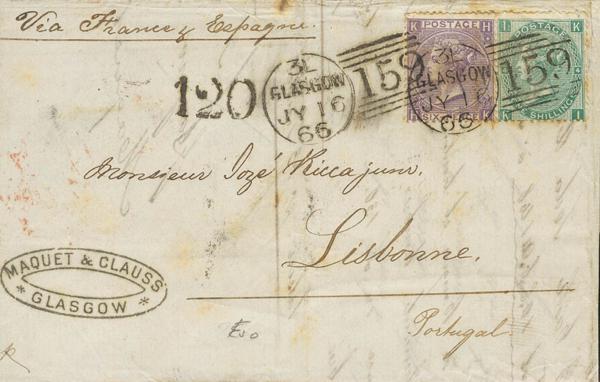 Via France & Espagne.
120
3L
GLASGOW
JY 16
66
159
3L
GLASGOW
JY 16
66
159
K H
POSTAGE
SIX
H K
I K
POSTAGE
ONE SHILLING
K I
Monsieur Jozé
Lisbonne.
Portugal.
MAQUET & CLAUSS
* GLASGOW *